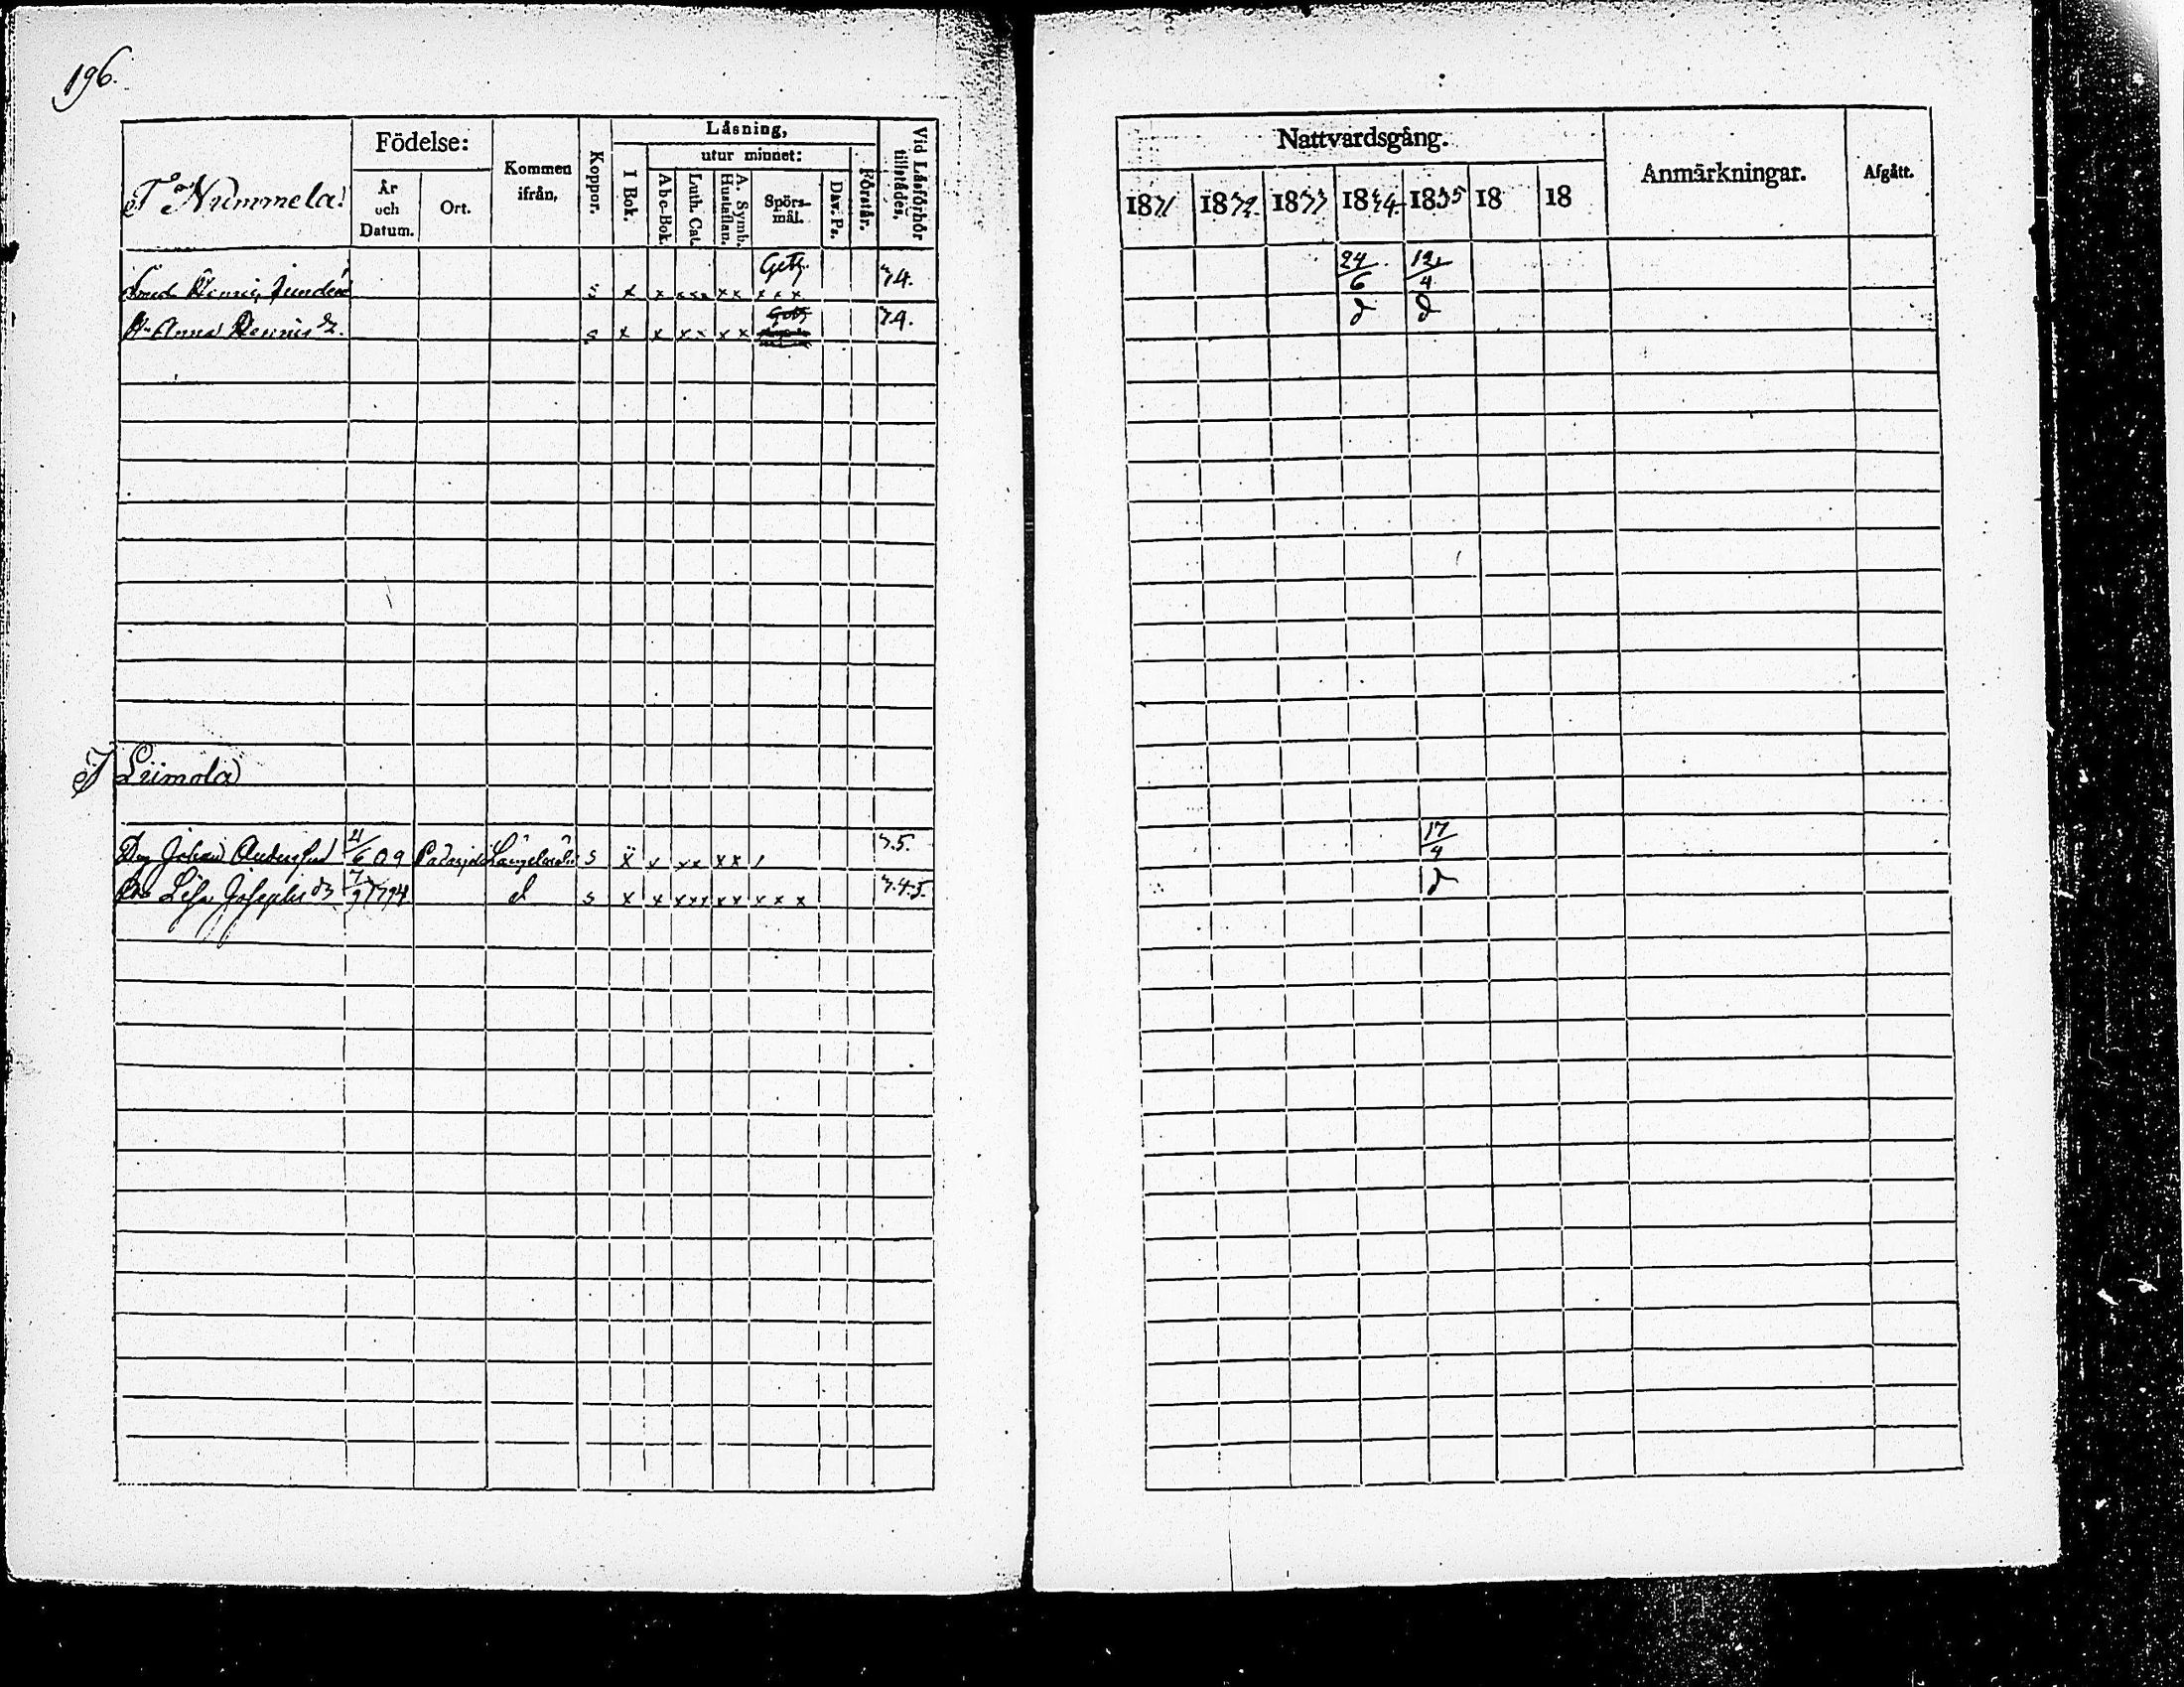 196.
Födelse:
Läsning,
utur minnet:
T Nummela
År och Datum.
Ort.
Kommen ifrån,
Koppor.
I Bok.
Abc-Bok.
Luth. Cat.
A. Symb. Hustaflan.
Spörs-mål.
Dav. Ps.
Förstår.
Vid Läsförhör tillstädes,
s x x xxx xx xxx 34.
Anna s x x xx xx 34.
T Liimola
Johan 4/6 09 s x x xx xx 35.
Lisa Josephs 7/9 1794 d s x x xxx xx xxx 3.4.5.
Nattvardsgång.
Anmärkningar.
Afgått.
1831 1832 1833 1834 1835 18 18
24/6 12/4
d d
17/4
d